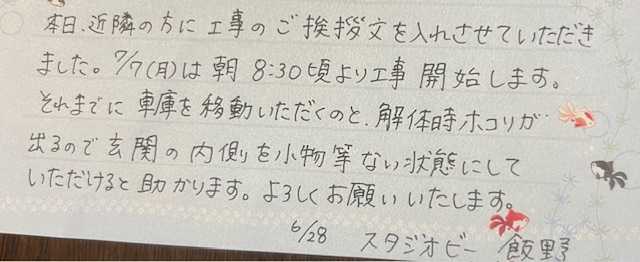 本日、近隣の方に工事のご挨拶文を入れさせていただき
ました。7/7(月)は朝 8:30頃より工事開始します。
それまでに車庫を移動いただくのと、解体時ホコリが
出るので玄関の内側を小物等ない状態にして
いただけると助かります。よろしくお願いいたします。
6/28 スタジオビー 飯野